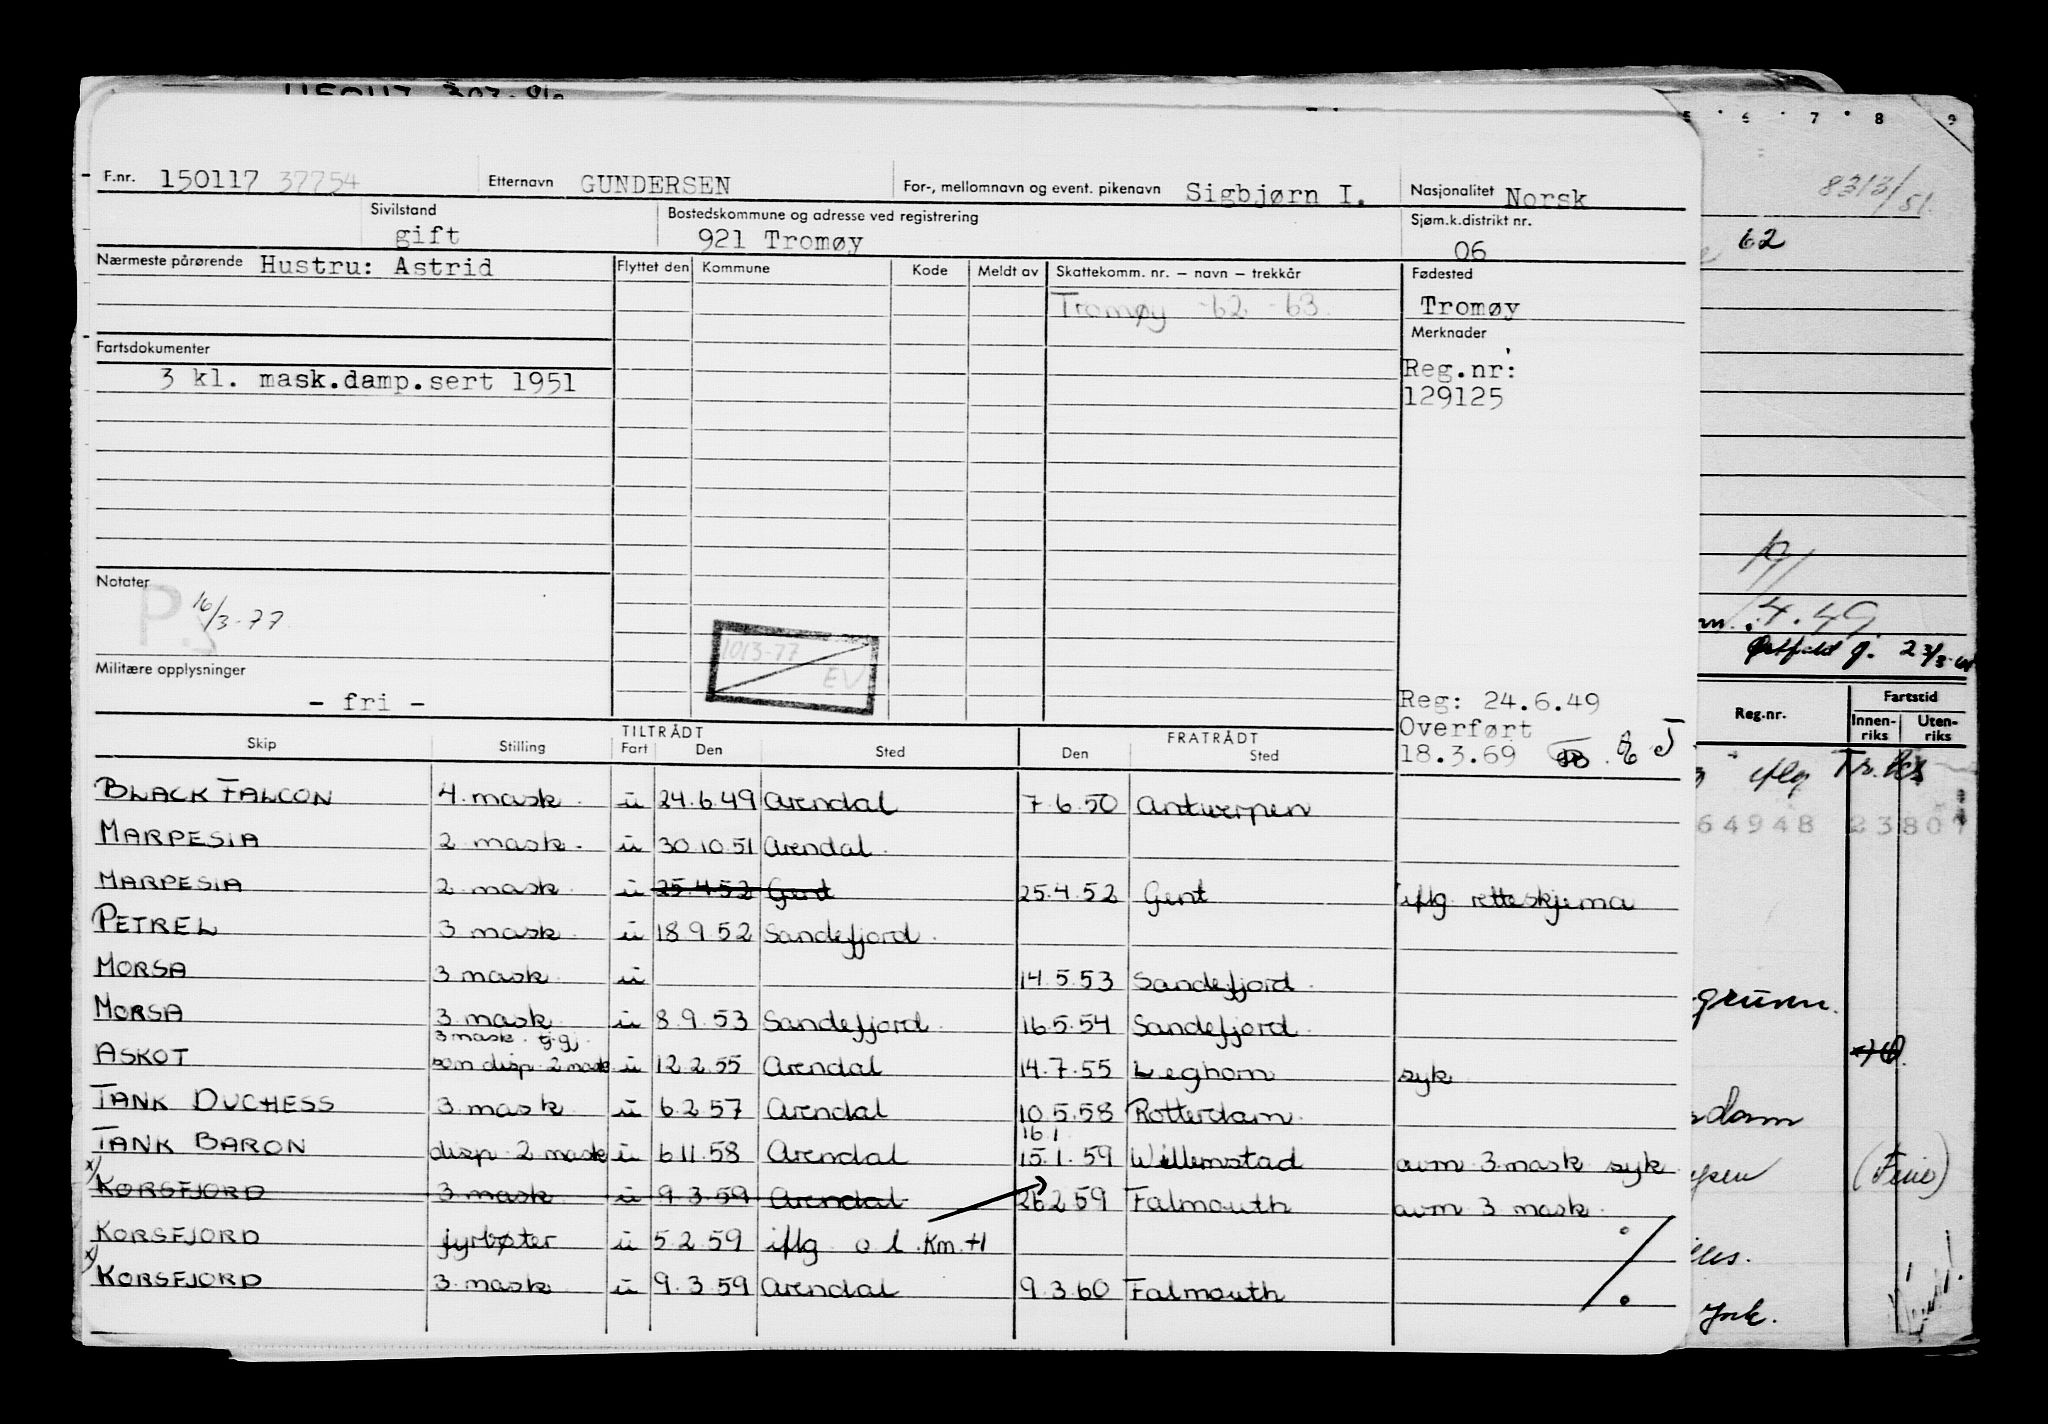 5 6 7 8 9
8313/51
F.nr. 150117 37754 Etternavn GUNDERSEN For-, mellomnavn og event. pikenavn Sigbjørn I. Nasjonalitet Norsk
Sivilstand gift Bostedskommune og adresse ved registrering 921 Tromøy Sjøm.k.distrikt nr. 06
62
Nærmeste pårørende Hustru: Astrid Flyttet den Kommune Kode Meldt av Skattekomm. nr. – navn – trekkår Fødested
Tromøy -62 -63 Tromøy
Merknader
Fartsdokumenter Reg.nr:
3 kl. mask.damp.sert 1951 129125
Notater
P. 16/3-77
1013-77
EV
4.49
Militære opplysninger
- fri - Reg: 24.6.49
Overført
18.3.69
Reg.nr. Fartstid
Innen-riks Uten-riks
TILTRÅDT FRATRÅDT
Skip Stilling Fart Den Sted Den Sted
BLACK FALCON 4. mask. u 24.6.49 Arendal 7.6.50 Antwerpen
MARPESIA 2 mask. u 30.10.51 Arendal.
64948 23801
MARPESIA 2 mask. u 25.4.52 Gent 25.4.52 Gent iflg retteskjema
PETREL 3 mask. u 18.9.52 Sandefjord.
MORSA 3 mask. u 14.5.53 Sandefjord.
MORSA 3 mask. u 8.9.53 Sandefjord. 16.5.54 Sandefjord.
3 mask. tj.gj.
ASKOT som disp. 2 mask u 12.2.55 Arendal 14.7.55 Leghorn syk
TANK DUCHESS 3. mask. u 6.2.57 Arendal 10.5.58 Rotterdam.
16.1
TANK BARON disp 2 mask u 6.11.58 Arendal 15.1.59 Willemstad avm 3 mask syk.
x) KORSFJORD 3 mask u 9.3.59 Arendal. 26.2.59 Falmouth avm 3 mask.
KORSFJORD fyrbøter u 5.2.59 iflg o.l. Km.+1
x) KORSFJORD 3. mask u 9.3.59 Arendal 9.3.60 Falmouth